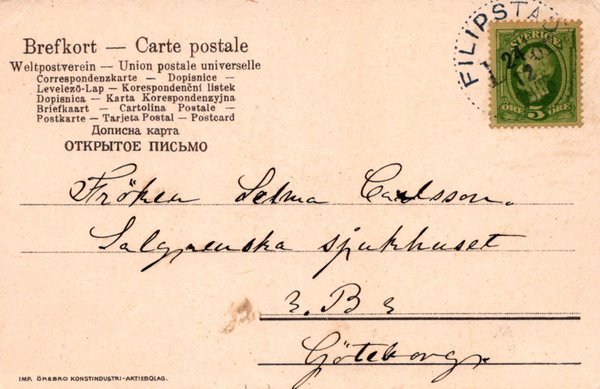 Brefkort — Carte postale
Weltpostverein — Union postale universelle
Correspondenzkarte — Dopisnice —
Levelező-Lap — Korespondenční listek
Dopisnica — Karta Korespondenzyjna
Briefkaart — Cartolina Postale —
Postkarte — Tarjeta Postal — Postcard
Дописна карта
ОТКРЫТОЕ ПИСЬМО
FILIPSTAD
24
12
SVERIGE
ÖRE 5 ÖRE
Fröken Selma Carlsson.
Salgrenska sjukhuset
3. B 3
Göteborg.
IMP. ÖREBRO KONSTINDUSTRI-AKTIEBOLAG.